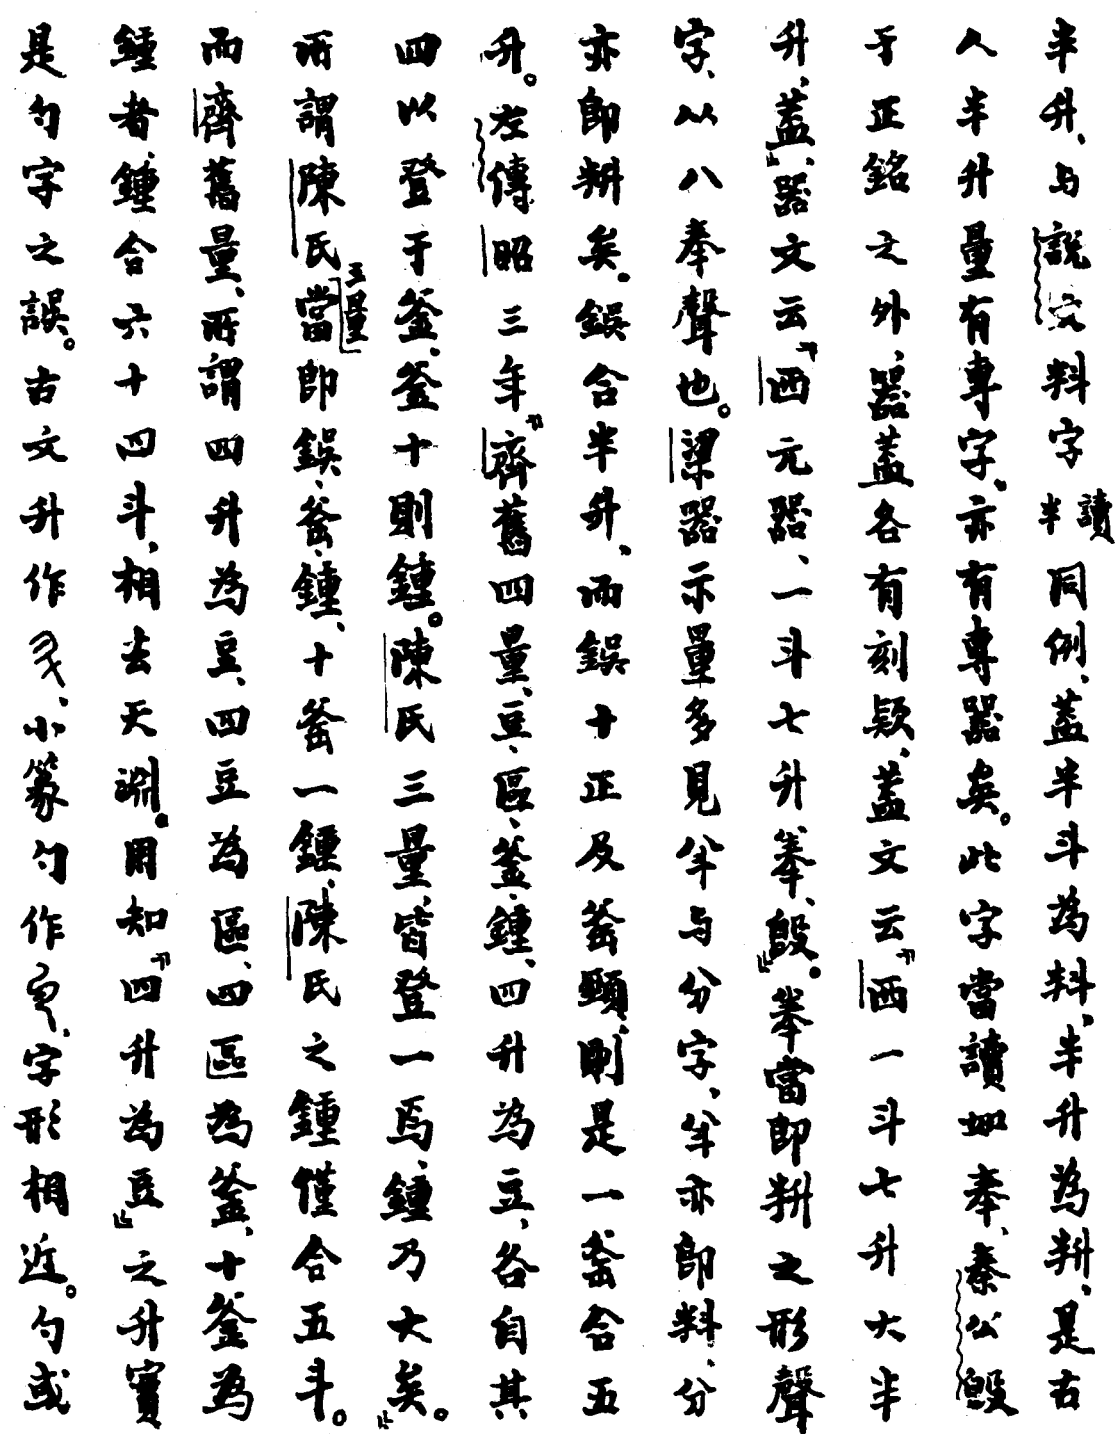 半升、与說文𣁬字讀半同例、蓋半斗為𣁬、半升為、是古
人半升量有專字、亦有專器矣。此字當讀如奉、秦公𣪘
于正銘之外、器蓋各有刻款、蓋文云『西一斗七升大半
升、蓋』、器文云『西元器、一斗七升、𣪘』。當即之形聲
字、从八奉聲也。梁器示量多見与分字、亦即𣁬、分
亦即矣。鋘合半升、而鋘十正及釜頸、則是一釜合五
升。左傳昭三年『齊舊四量、豆、區、釜、鍾、四升為豆、各自其
四以登于釜、釜十則鍾。陳氏三量、皆登一焉、鍾乃大矣』。
所謂陳氏三量當即鋘、釜、鍾、十釜一鍾、陳氏之鍾僅合五斗。
而齊舊量、所謂四升為豆、四豆為區、四區為釜、十釜為
鍾者、鍾合六十四斗、相去天淵。用知『四升為豆』之升實
是勺字之誤。古文升作、小篆勺作、字形相近。勺或